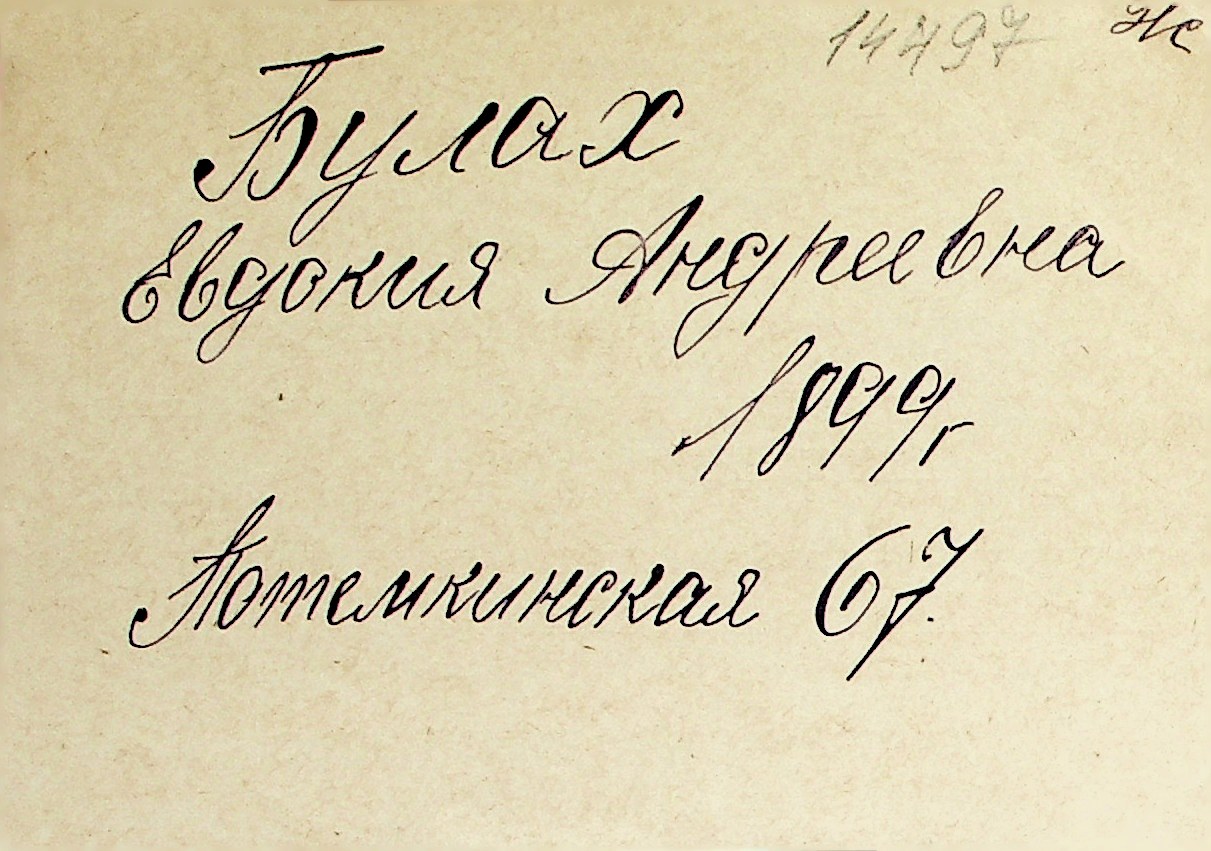 14497 нс
Булах
Евдокия Андреевна
1899г
Потемкинская 67.